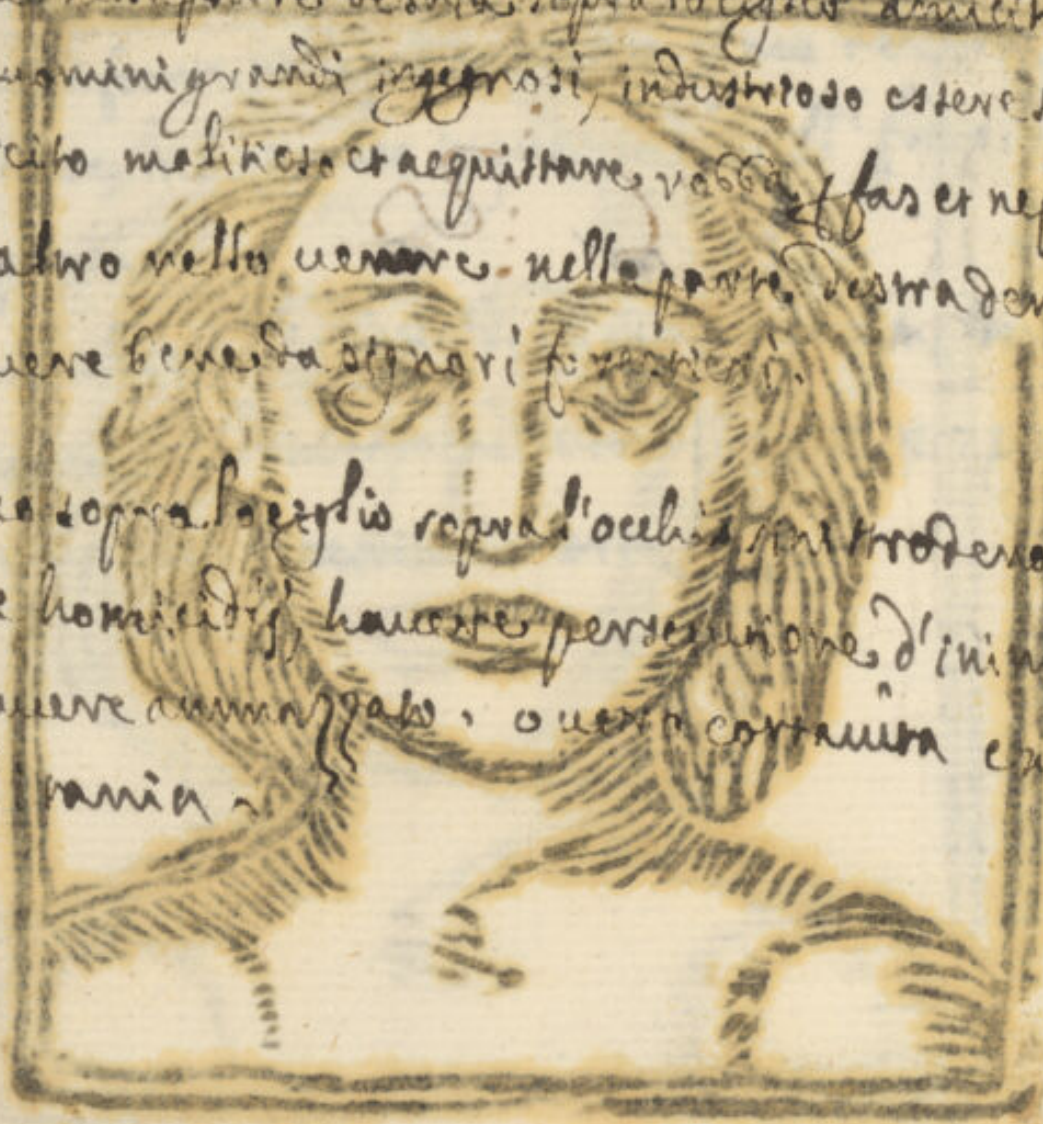 destra sopra lo ciglio amicit
uomini grandi ingegnosi, industrioso essere
cito malitioso et acquistare robba fas et nef
altro nello venere nella parte destra den
uere bene da signori forastieri.
sopra lo ciglio sopra l'occhio sinistro deno
homicidij, hauere persecutione d'ini
uere ammazzato, ouero corta uita e
rania